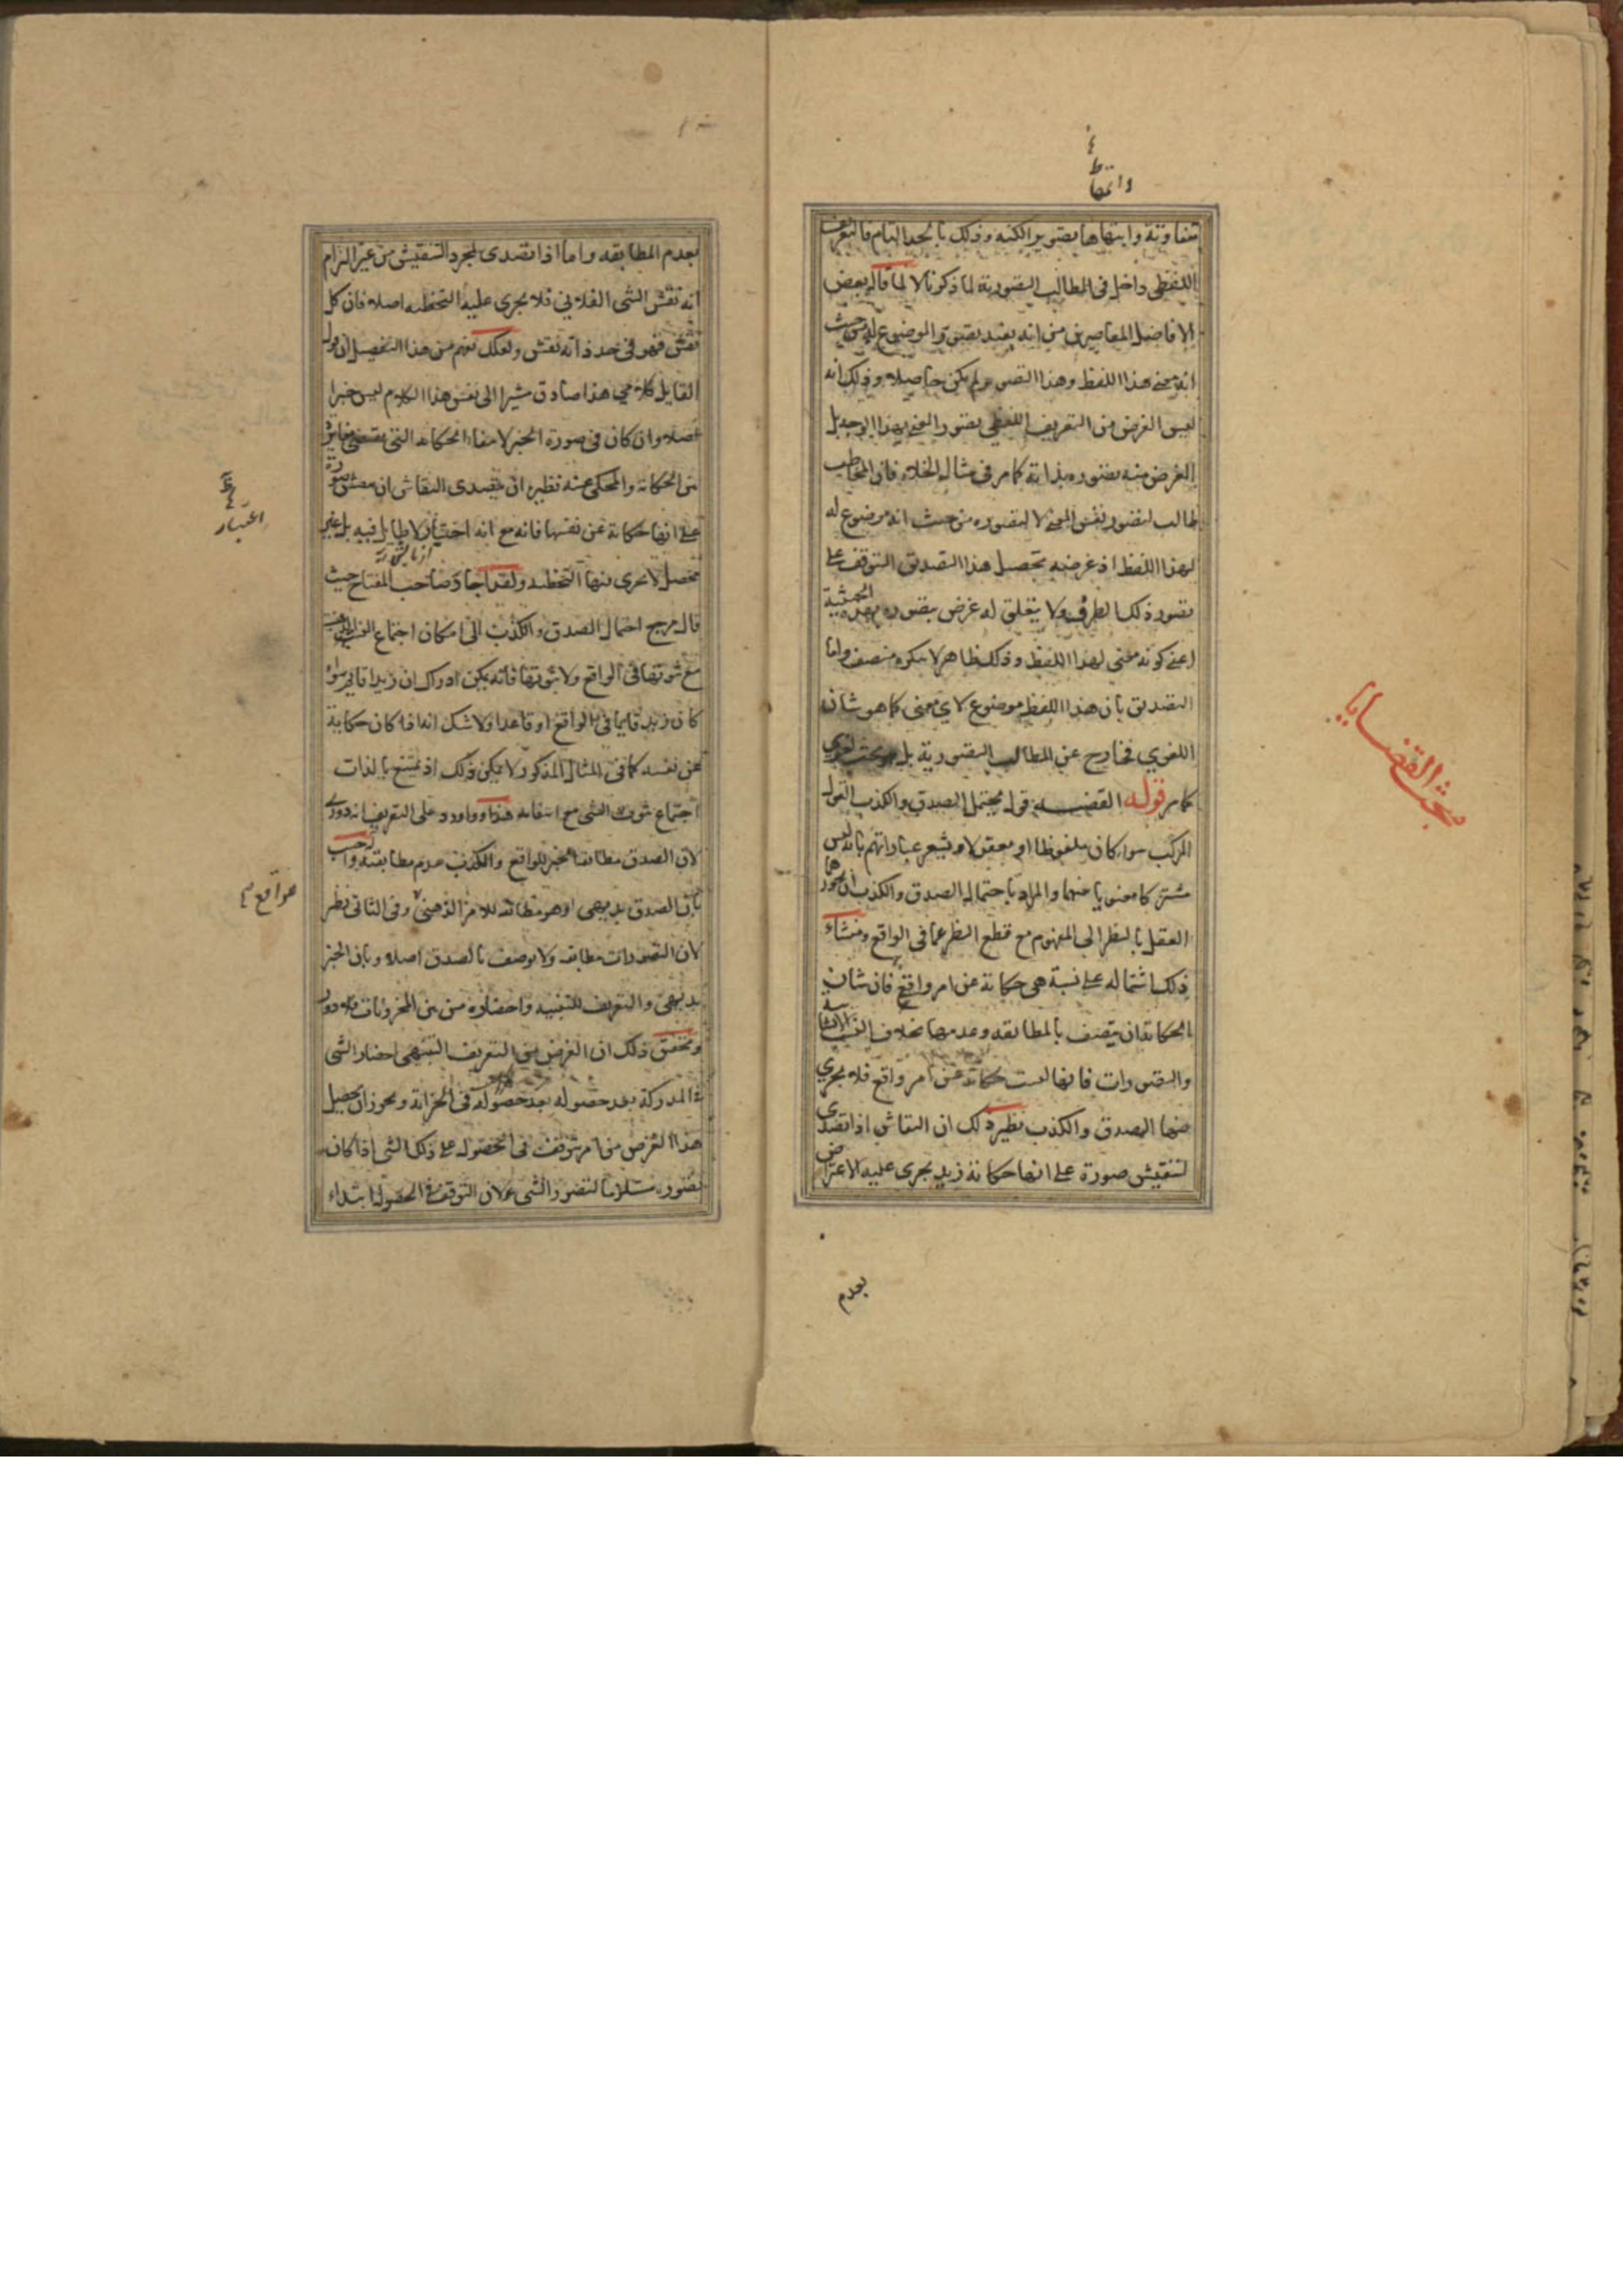 وانتهاء
متفاوتة وانتهاءها بتصوير الكنه وذلك بالحد التام فالتعريف
اللفظي داخل في المطالب التصورية لما ذكرنا لا لما قاله بعض
الافاضل المعاصرين من انه يفيد تصور الموضوع له من حيث
انه معنى هذا اللفظ وهذا التصور لم يكن حاصلا وذلك انه
ليس الغرض من التعريف اللفظي تصور المعنى بهذا الوجه بل
الغرض منه تصوره بذاته كما مر في مثال الخلاء فان المخاطب
طالب لتصور نفس المعنى لا لتصوره من حيث انه موضوع له
لهذا اللفظ اذ غرضه تحصيل هذا التصديق المتوقف على
تصور ذلك الطرف ولا يتعلق له غرض بتصوره بهذه الحيثية
اعني كونه معنى لهذا اللفظ وذلك ظاهر لا ينكره منصف واما
التصديق بان هذا اللفظ موضوع لاي معنى كما هو شان
اللغوي فخارج عن المطالب التصورية بل هو بحث لغوي
كما مر قوله القضية قول يحتمل الصدق والكذب القول
المركب سواء كان ملفوظا او معقولا ويشعر عباراتهم بانه ليس
مشتركا معنويا بينهما والمراد باحتمال الصدق والكذب ان يجوزهما
العقل بالنظر الى المفهوم مع قطع النظر عما في الواقع ومنشاء
ذلك اشتماله على نسبة هي حكاية عن امر واقع فان شان
الحكاية ان يتصف بالمطابقه وعدمها بخلاف النسب الانشائية
والتصورات فانها ليست حكاية عن امر واقع فلا يجري
فيها الصدق والكذب نظير ذلك ان النقاش اذا تصدى
لتنقيش صورة على انها حكاية زيد يجرى عليه الاعتراض
بعدم
مبحث القضايا
بعدم المطابقه واما اذا تصدى لمجرد التنقيش من غير التزام
انه نقش الشئ الفلاني فلا يجرى عليه التخطئه اصلا فان كل
نقش فهو في حد ذاته نقش ولعلك تفهم من هذا التفصيل ان قول
القايل كلامي هذا صادق مشيرا الى نفس هذا الكلام ليس خبرا
اصلا وان كان في صورة الخبر لانتفاء الحكاية التي تقتضي مغايرة
بين الحكاية والمحكى عنه نظير ان يتصدى النقاش ان ينقش صورة
على انها حكاية عن نفسها فانه مع انه اختيار لا طايل فيه بل غير
محصل لا يجرى فيها التخطئه ولقد اجاد صاحب المفتاح حيث
قال مرجع احتمال الصدق والكذب الى امكان اجتماع النسبة
مع ثبوتها في الواقع ولا ثبوتها فانه يمكن ادراك ان زيدا قايم سواء
كان زيد قايما في الواقع او قاعدا ولا شك انه اذا كان حكاية
عن نفسه كما في المثال المذكور لا يمكن ذلك اذ يمتنع بالذات
اجتماع ثبوت الشئ مع انتفائه هذا واورد على التعريف انه دوري
لان الصدق مطابقة الخبر للواقع والكذب عدم مطابقته واجيب
بان الصدق بديهي او هو مطابقة للامر الذهني وفي الثاني نظر
لان التصورات مطابقه ولا يوصف بالصدق اصلا وبان الخبر
بديهي والتعريف للتنبيه واحضاره من بين المخزونات فلا دور
وتحقيق ذلك ان الغرض من التعريف التنبيهي احضار الشئ
في المدركة بعد حصوله في الخزانة ويجوز ان يحصل
هذا الغرض من امر يتوقف في الحصول على ذلك الشئ اذا كان
تصوره مستلزما لتصور الشئ لان التوقف في الحصول ابتداء
اعتبار
مواقع